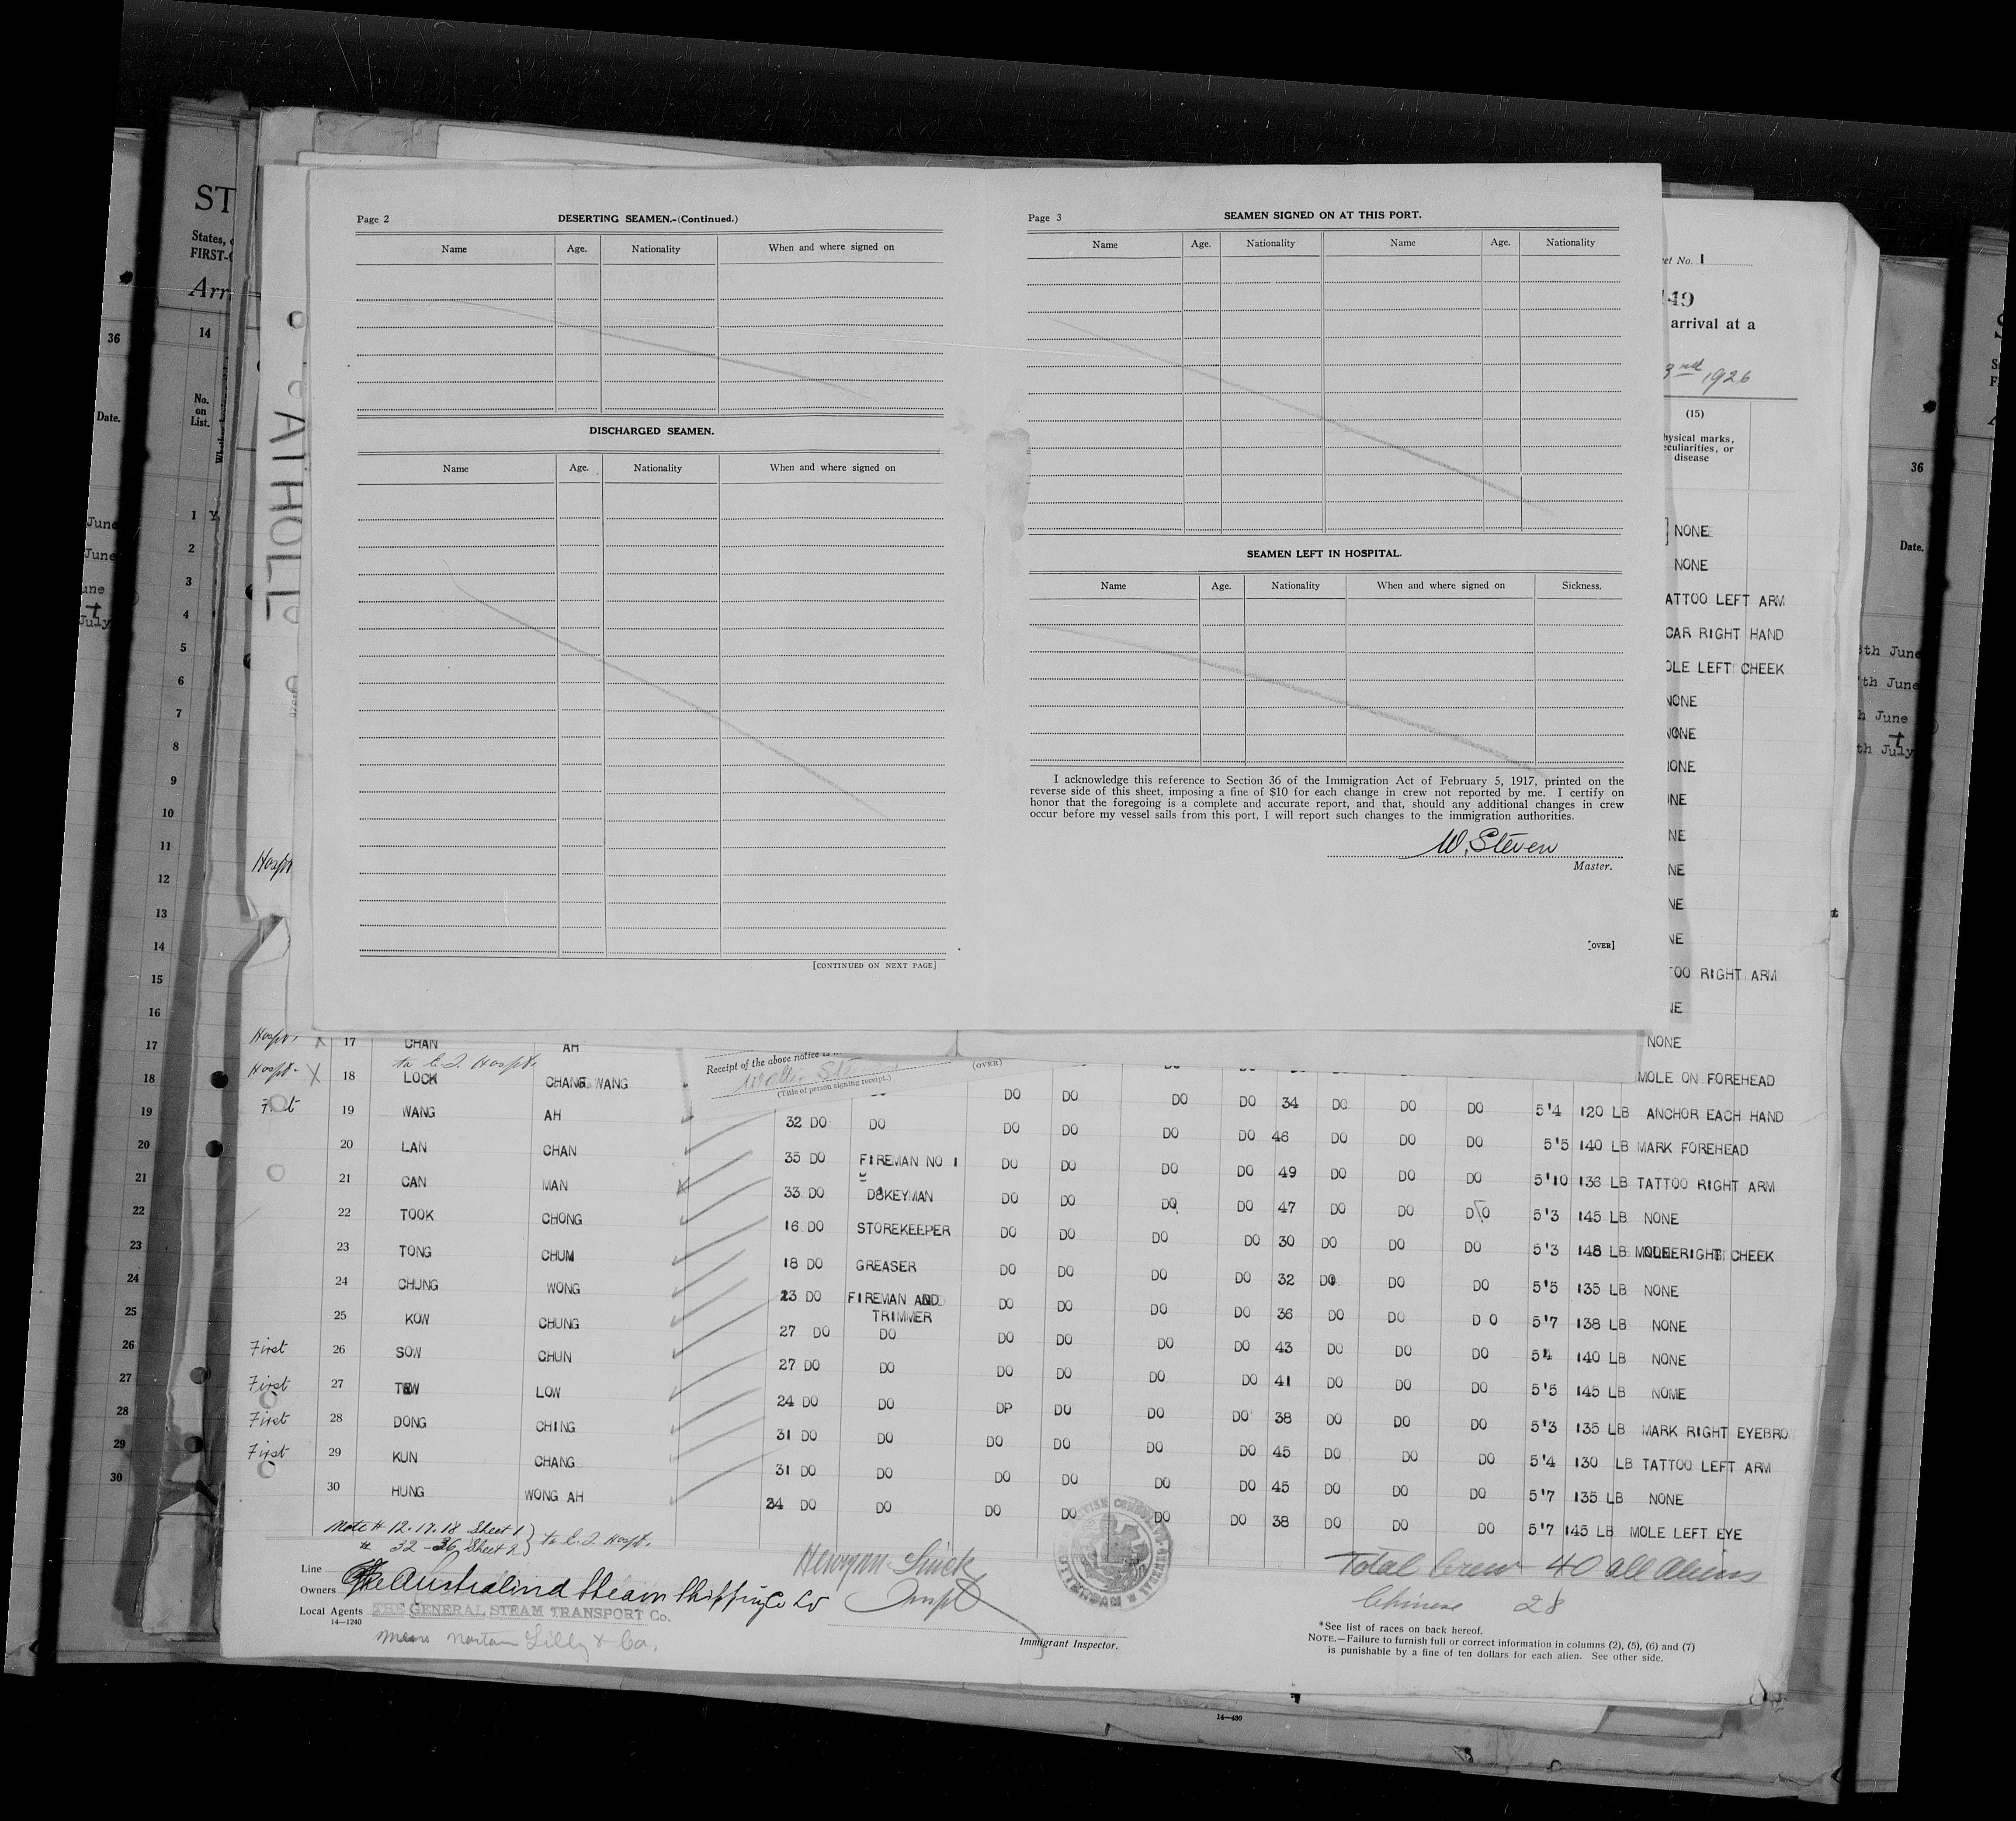 Page 2 DESERTING SEAMEN.-(Continued.)
Name Age. Nationality When and where signed on
DISCHARGED SEAMEN.
Name Age. Nationality When and where signed on
[CONTINUED ON NEXT PAGE]
Page 3 SEAMEN SIGNED ON AT THIS PORT.
Name Age. Nationality Name Age. Nationality
SEAMEN LEFT IN HOSPITAL.
Name Age. Nationality When and where signed on Sickness.
I acknowledge this reference to Section 36 of the Immigration Act of February 5, 1917, printed on the
reverse side of this sheet, imposing a fine of $10 for each change in crew not reported by me. I certify on
honor that the foregoing is a complete and accurate report, and that, should any additional changes in crew
occur before my vessel sails from this port, I will report such changes to the immigration authorities.
W. Steven
Master.
[OVER]
ST
States,
FIRST-
Arr
36
14
Date.
No.
on
List.
June
June
une
July
1
2
3
4
5
6
7
8
9
10
11
12
13
14
15
16
17
18
19
20
21
22
23
24
25
26
27
28
29
30
ATHOLL
et No. 1
49
arrival at a
3rd 1926
(15)
hysical marks,
eculiarities, or
disease
NONE
NONE
ATTOO LEFT ARM
CAR RIGHT HAND
OLE LEFT CHEEK
NONE
NONE
ONE
NE
NE
NE
NE
NE
TOO RIGHT ARM
NE
NONE
MOLE ON FOREHEAD
36
Date.
8th June
th June
h June
th July
Receipt of the above notice is
(Title of person signing receipt.)
(OVER)
Hospt. X 17 CHAN AH
to E.I. Hospt.
Hospt. X 18 LOCK CHANG WANG DO DO DO DO 34 DO DO DO 5'4 120 LB ANCHOR EACH HAND
19 WANG AH 32 DO DO DO DO DO DO 46 DO DO DO 5'5 140 LB MARK FOREHEAD
20 LAN CHAN 35 DO FIREMAN NO 1 DO DO DO DO 49 DO DO DO 5'10 136 LB TATTOO RIGHT ARM
21 CAN MAN 33 DO DOKEYMAN DO DO DO DO 47 DO DO DO 5'3 145 LB NONE
22 TOOK CHONG 16 DO STOREKEEPER DO DO DO DO 30 DO DO DO 5'3 148 LB MOLE RIGHT CHEEK
23 TONG CHUM 18 DO GREASER DO DO DO DO 32 DO DO DO 5'5 135 LB NONE
24 CHUNG WONG 23 DO FIREMAN AND TRIMMER DO DO DO DO 36 DO DO DO 5'7 138 LB NONE
25 KOW CHUNG 27 DO DO DO DO DO DO 43 DO DO DO 5'4 140 LB NONE
First 26 SOW CHUN 27 DO DO DO DO DO DO 41 DO DO DO 5'5 145 LB NOME
First 27 TEW LOW 24 DO DO DP DO DO DO 38 DO DO DO 5'3 135 LB MARK RIGHT EYEBRO
First 28 DONG CHING 31 DO DO DO DO DO DO 45 DO DO DO 5'4 130 LB TATTOO LEFT ARM
First 29 KUN CHANG 31 DO DO DO DO DO DO 45 DO DO DO 5'7 135 LB NONE
30 HUNG WONG AH 24 DO DO DO DO DO DO 38 DO DO DO 5'7 145 LB MOLE LEFT EYE
Note # 12.17.18 Sheet 1 } to E.I. Hospt.
" 32-36 Sheet 2
Line
Owners The Australind Steam Shipping Co Ld
Local Agents THE GENERAL STEAM TRANSPORT Co.
14—1240
Norton Lilly & Co.
Immigrant Inspector.
Total Crew 40 all Aliens
Chinese 28
*See list of races on back hereof.
NOTE.—Failure to furnish full or correct information in columns (2), (5), (6) and (7)
is punishable by a fine of ten dollars for each alien. See other side.
14—430